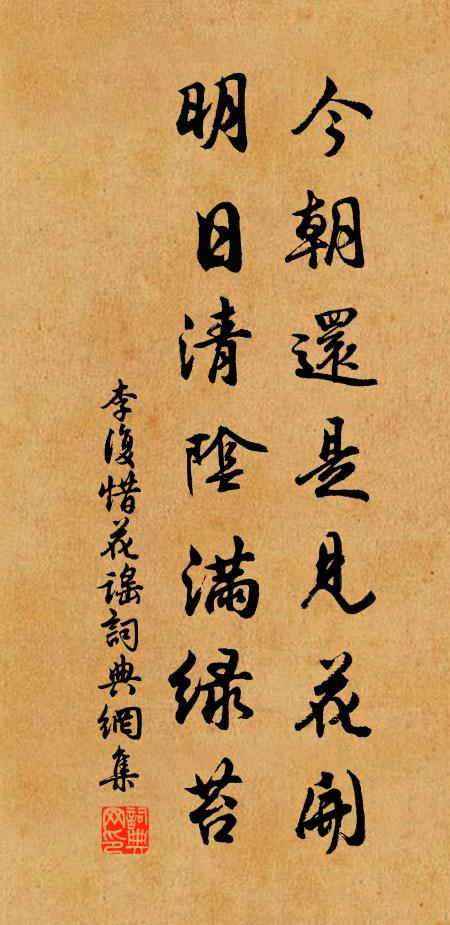 今朝還是見花開
明日清陰滿緑苔
李復惜花謠詞典網集
詞典網印